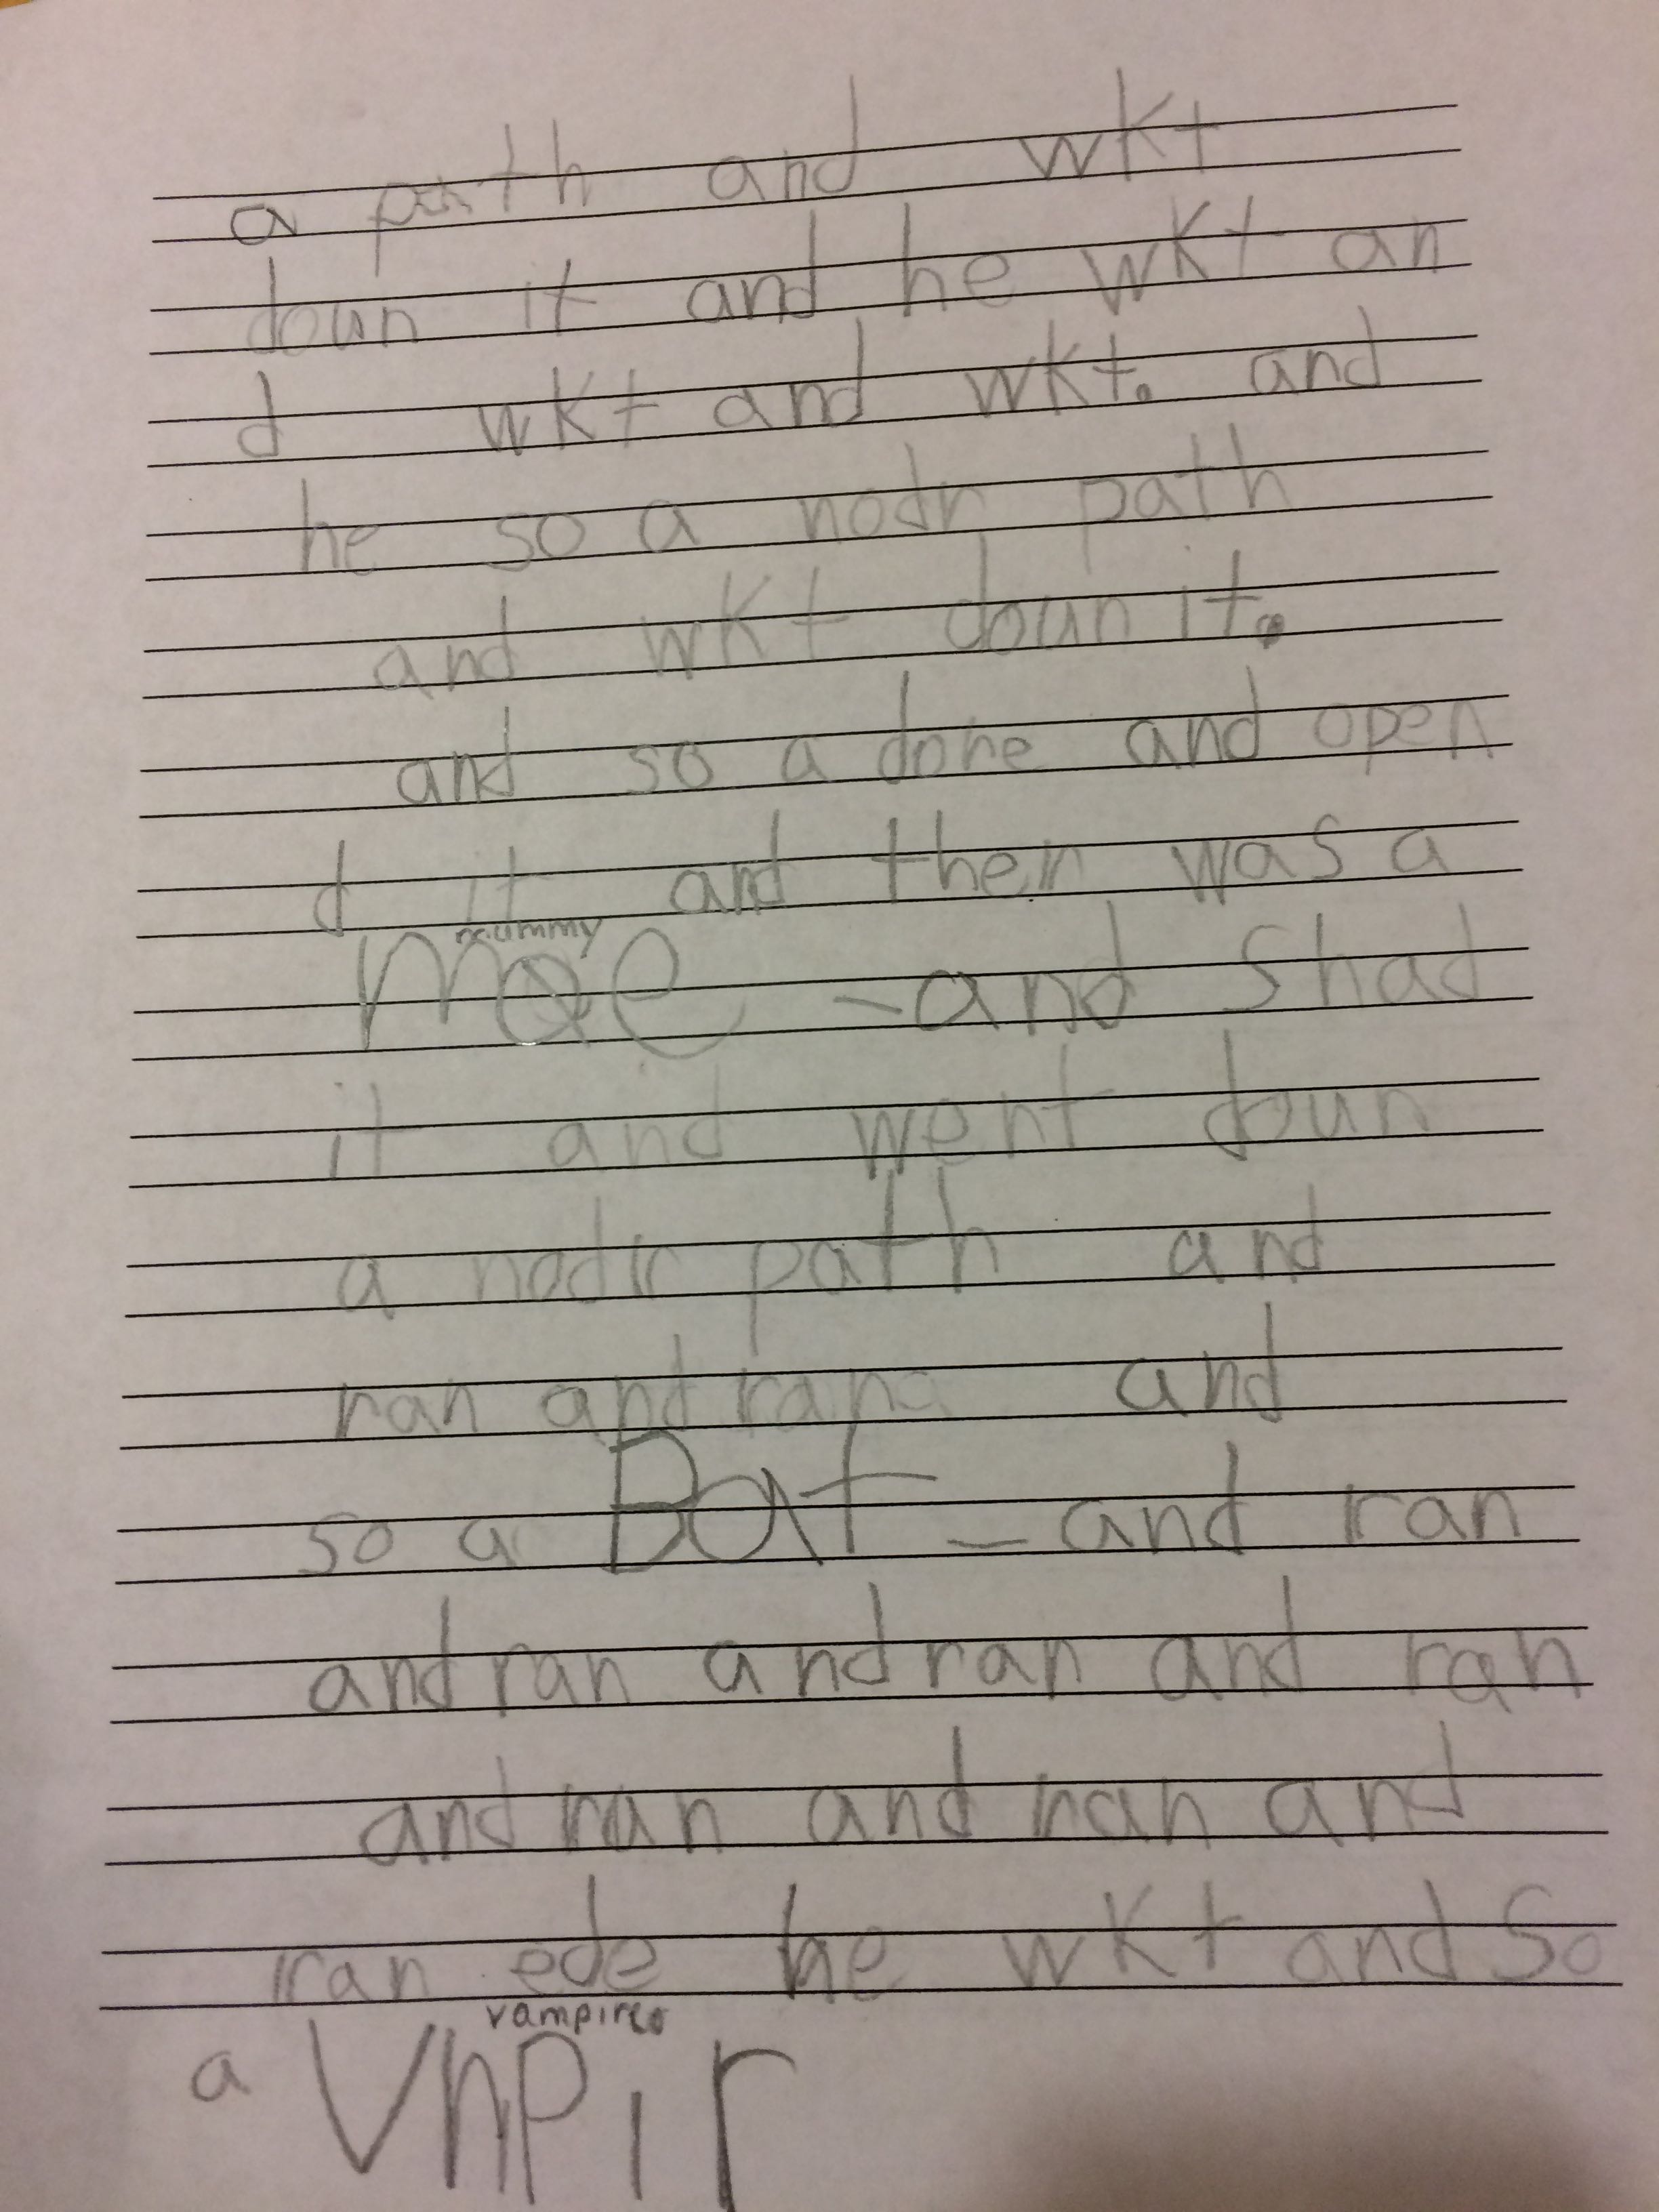 a path and wkt
doun it and he wkt an
d wkt and wkt. and
he so a nodr path
and wkt doun it.
and so a dore and open
d it and ther was a
mummy
moe - and shad
it and went doun
a nodr path and
ran and ran and
so a Bat - and ran
and ran and ran and ran
and ran and ran and
ran ede he wkt and So
vampire.
a VhPir